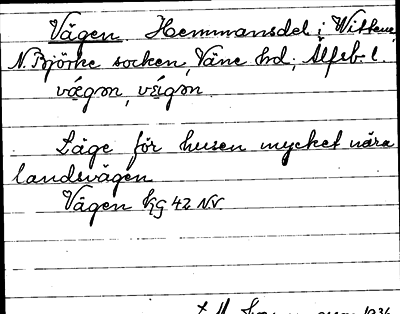 Vägen. Hemmansdel i Wittene,
N. Björke socken, Väne hd, Älfsb. l.
vǽgɘn, vǽgɘn.
Läge för husen mycket nära
landsvägen
Vägen kG 42 NV
1936